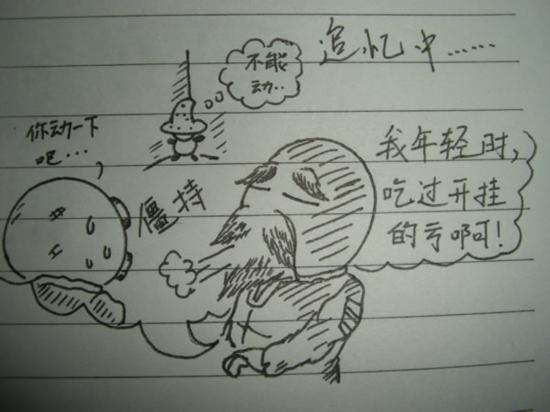 追忆中……
不能
动..
你动一下
吧…，
僵持
我年轻时，
吃过开挂
的亏啊！